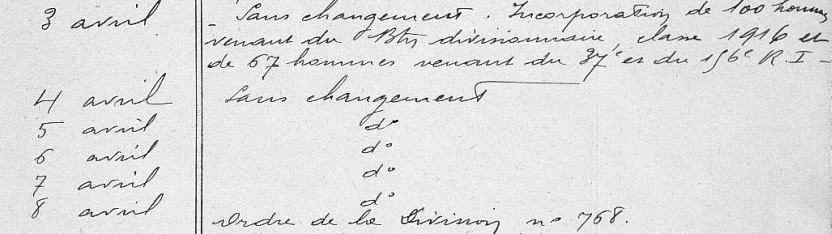 3 avril - Sans changement. Incorporation de 100 hommes
venant du Btn divisionnaire, classe 1916 et
de 67 hommes venant du 37e et du 156e R.I -
4 avril Sans changement
5 avril do
6 avril do
7 avril do
8 avril do
Ordre de la Division no 768.